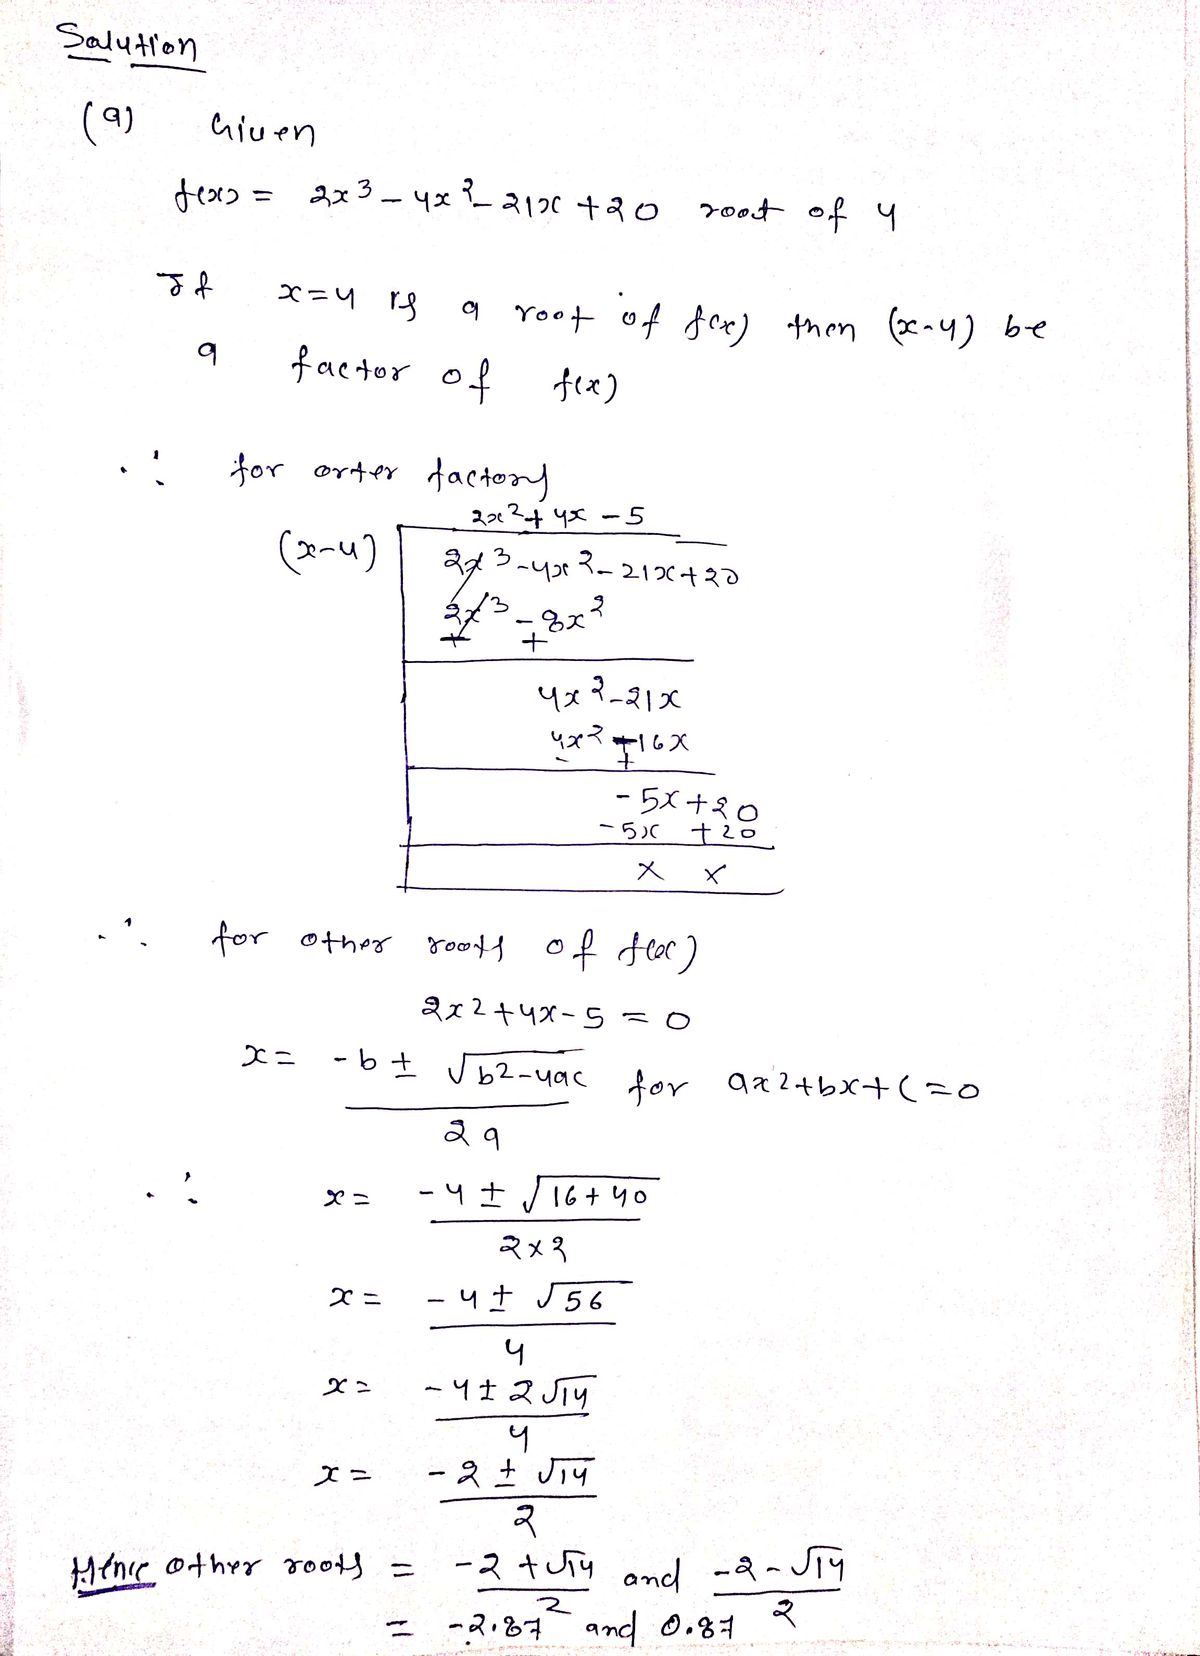 Solution
(a) Given
f(x) = 2x³ - 4x² - 21x + 20 root of 4
If x=4 is a root of f(x) then (x-4) be
a factor of f(x)
∴ for orter factory
2x² + 4x - 5
(x-4) 2x³ - 4x² - 21x + 20
2x³ - 8x²
+
4x² - 21x
4x² - 16x
- +
-5x + 20
-5x + 20
x x
∴ for other roots of f(x)
2x² + 4x - 5 = 0
x = -b ± √b2-4ac for ax2+bx+c=0
2a
∴ x = -4 ± √16+40
2×2
x = -4 ± √56
4
x = -4 ± 2√14
4
x = -2 ± √14
2
Hence other roots = -2 + √14 and -2 - √14
2 2
= -2.87 and 0.87